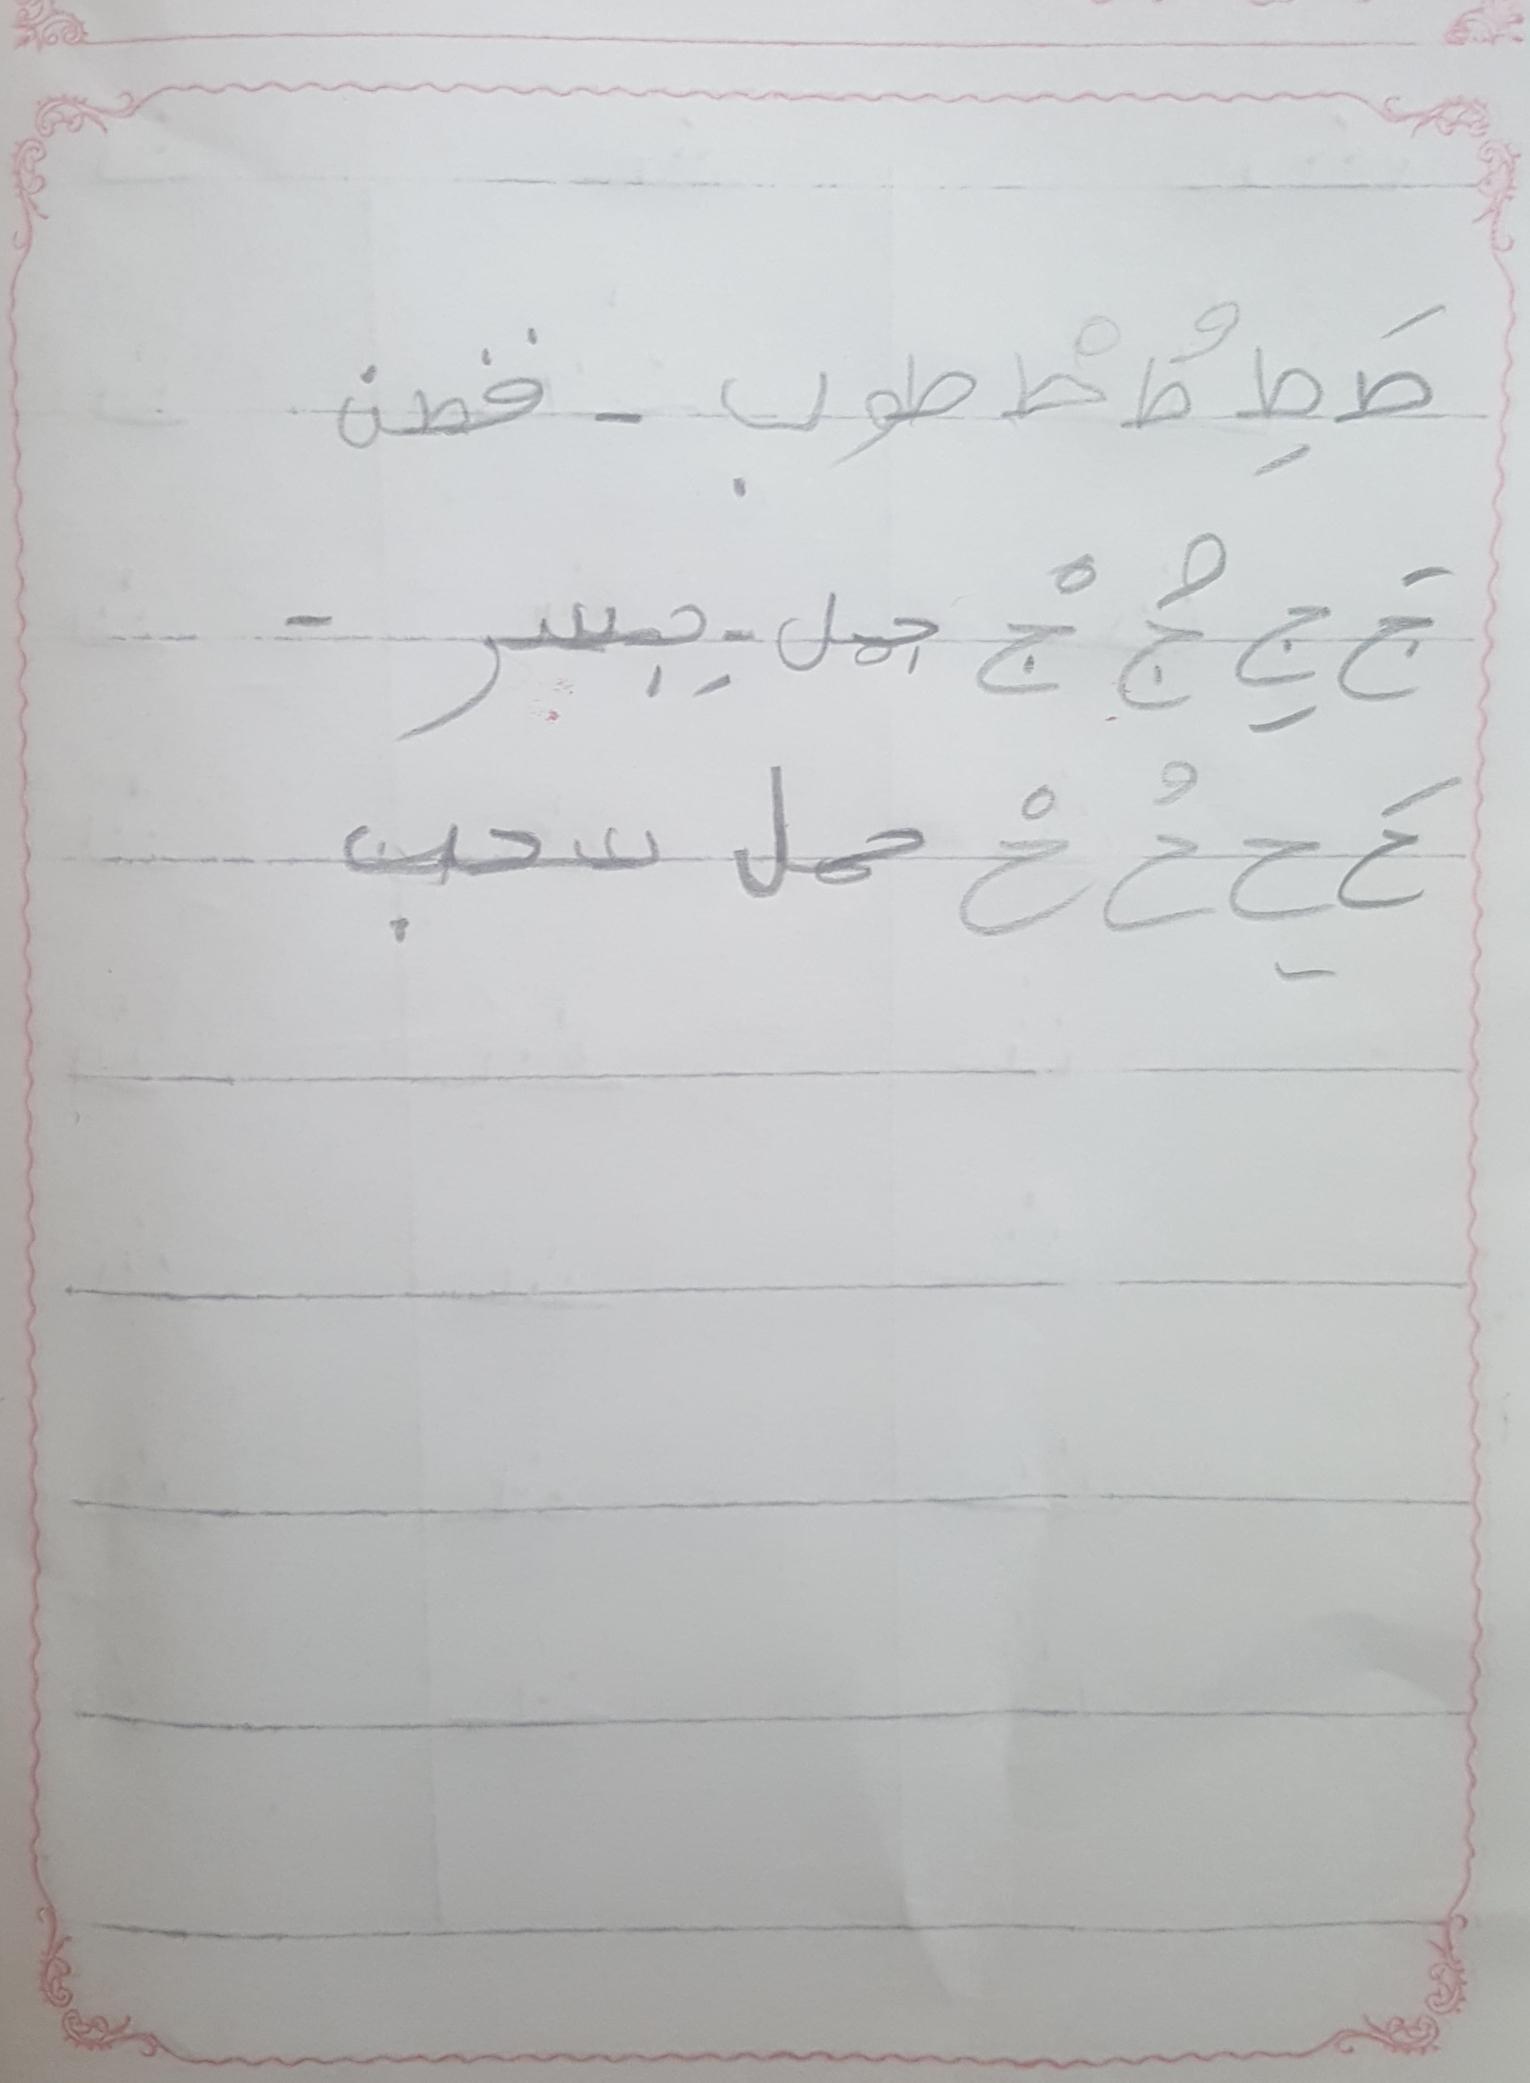 طَ طِ طُ طْ طوب - قطن
جَ جِ جُ جْ جمل - جِسر -
حَ حِ حُ حْ حمل سحب